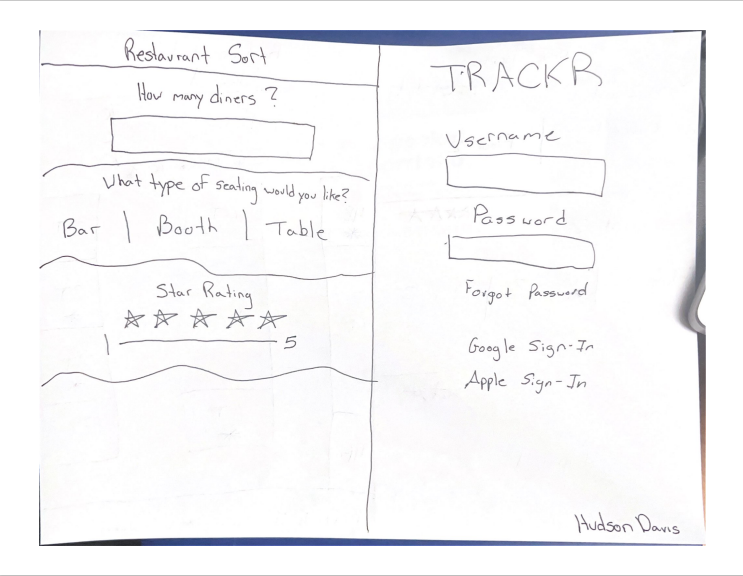 Restaurant Sort
How many diners ?
What type of seating would you like?
Bar | Booth | Table
Star Rating
1 5
TRACKR
Username
Password
Forgot Password
Google Sign-In
Apple Sign-In
Hudson Davis